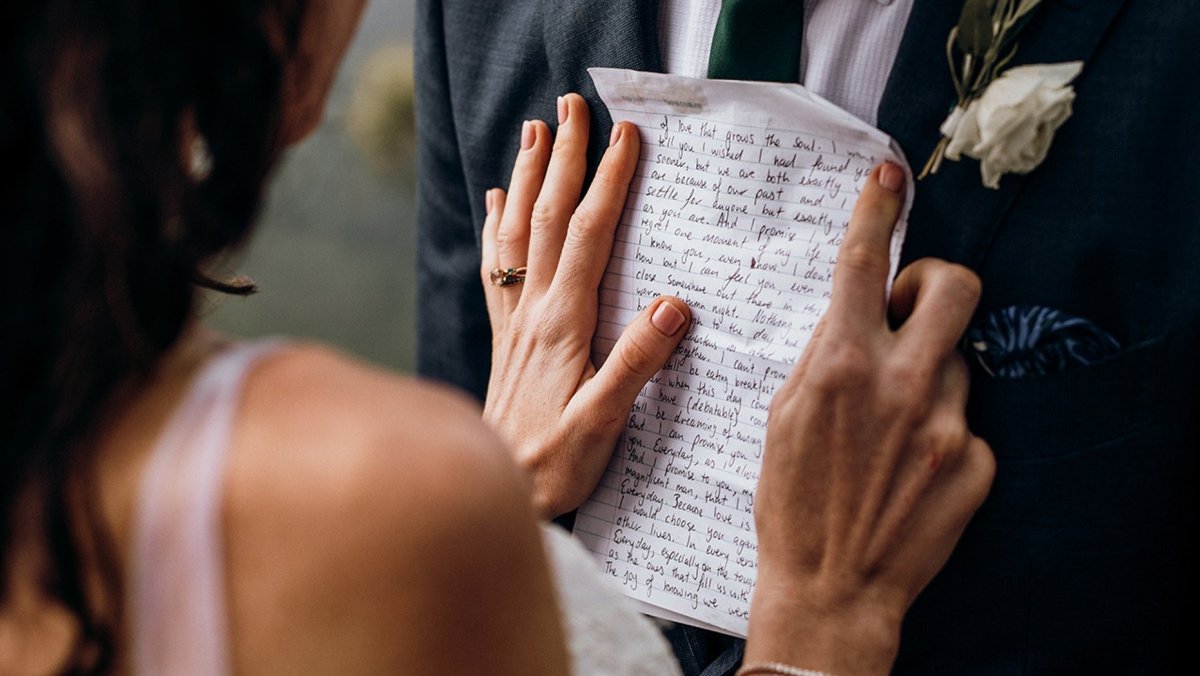 of love that grows the soul. I
tell you I wished I had found
sooner, but we are both exactly
are because of our past and I
settle for anyone but exactly
as you are. And I promise
regret one moment of my life
I know you, even know I don't
now but I can feel you, even
close somewhere out there in this
warm Autumn night. Nothing
to the day
as
together. I can't
still be eating breakfast
when this day
have (debatable)
still be dreaming of
But I can promise you
you. Everyday, as I
And I promise to you, my
magnificent man, that I
Everyday. Because love is
I would choose you again
other lives. In every
Everyday, especially on the
as the ones that fill us with
The joy of knowing we were